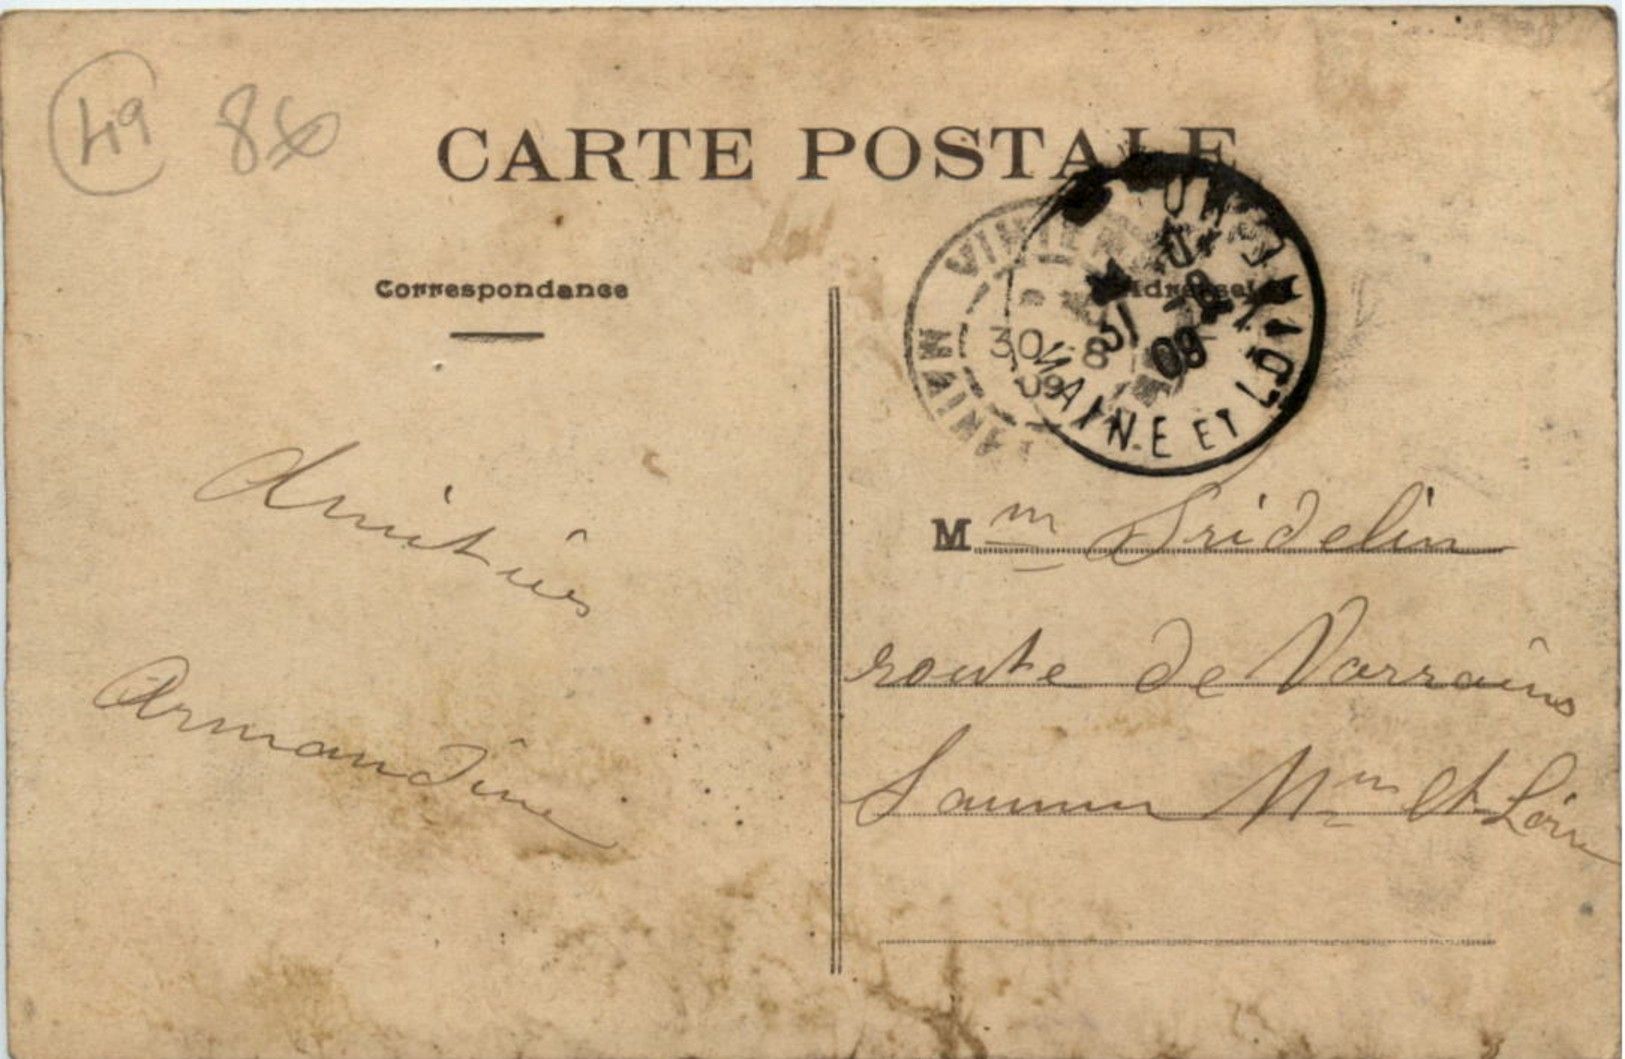 49 86
CARTE POSTALE
Correspondance
Adresse
VIHIERS
30 8
09
MAINE
31 8
09
MAINE ET LOIRE
Amitiés
Armandine
Mm Fridelin
route de Varrains
Saumur Mne et Loire